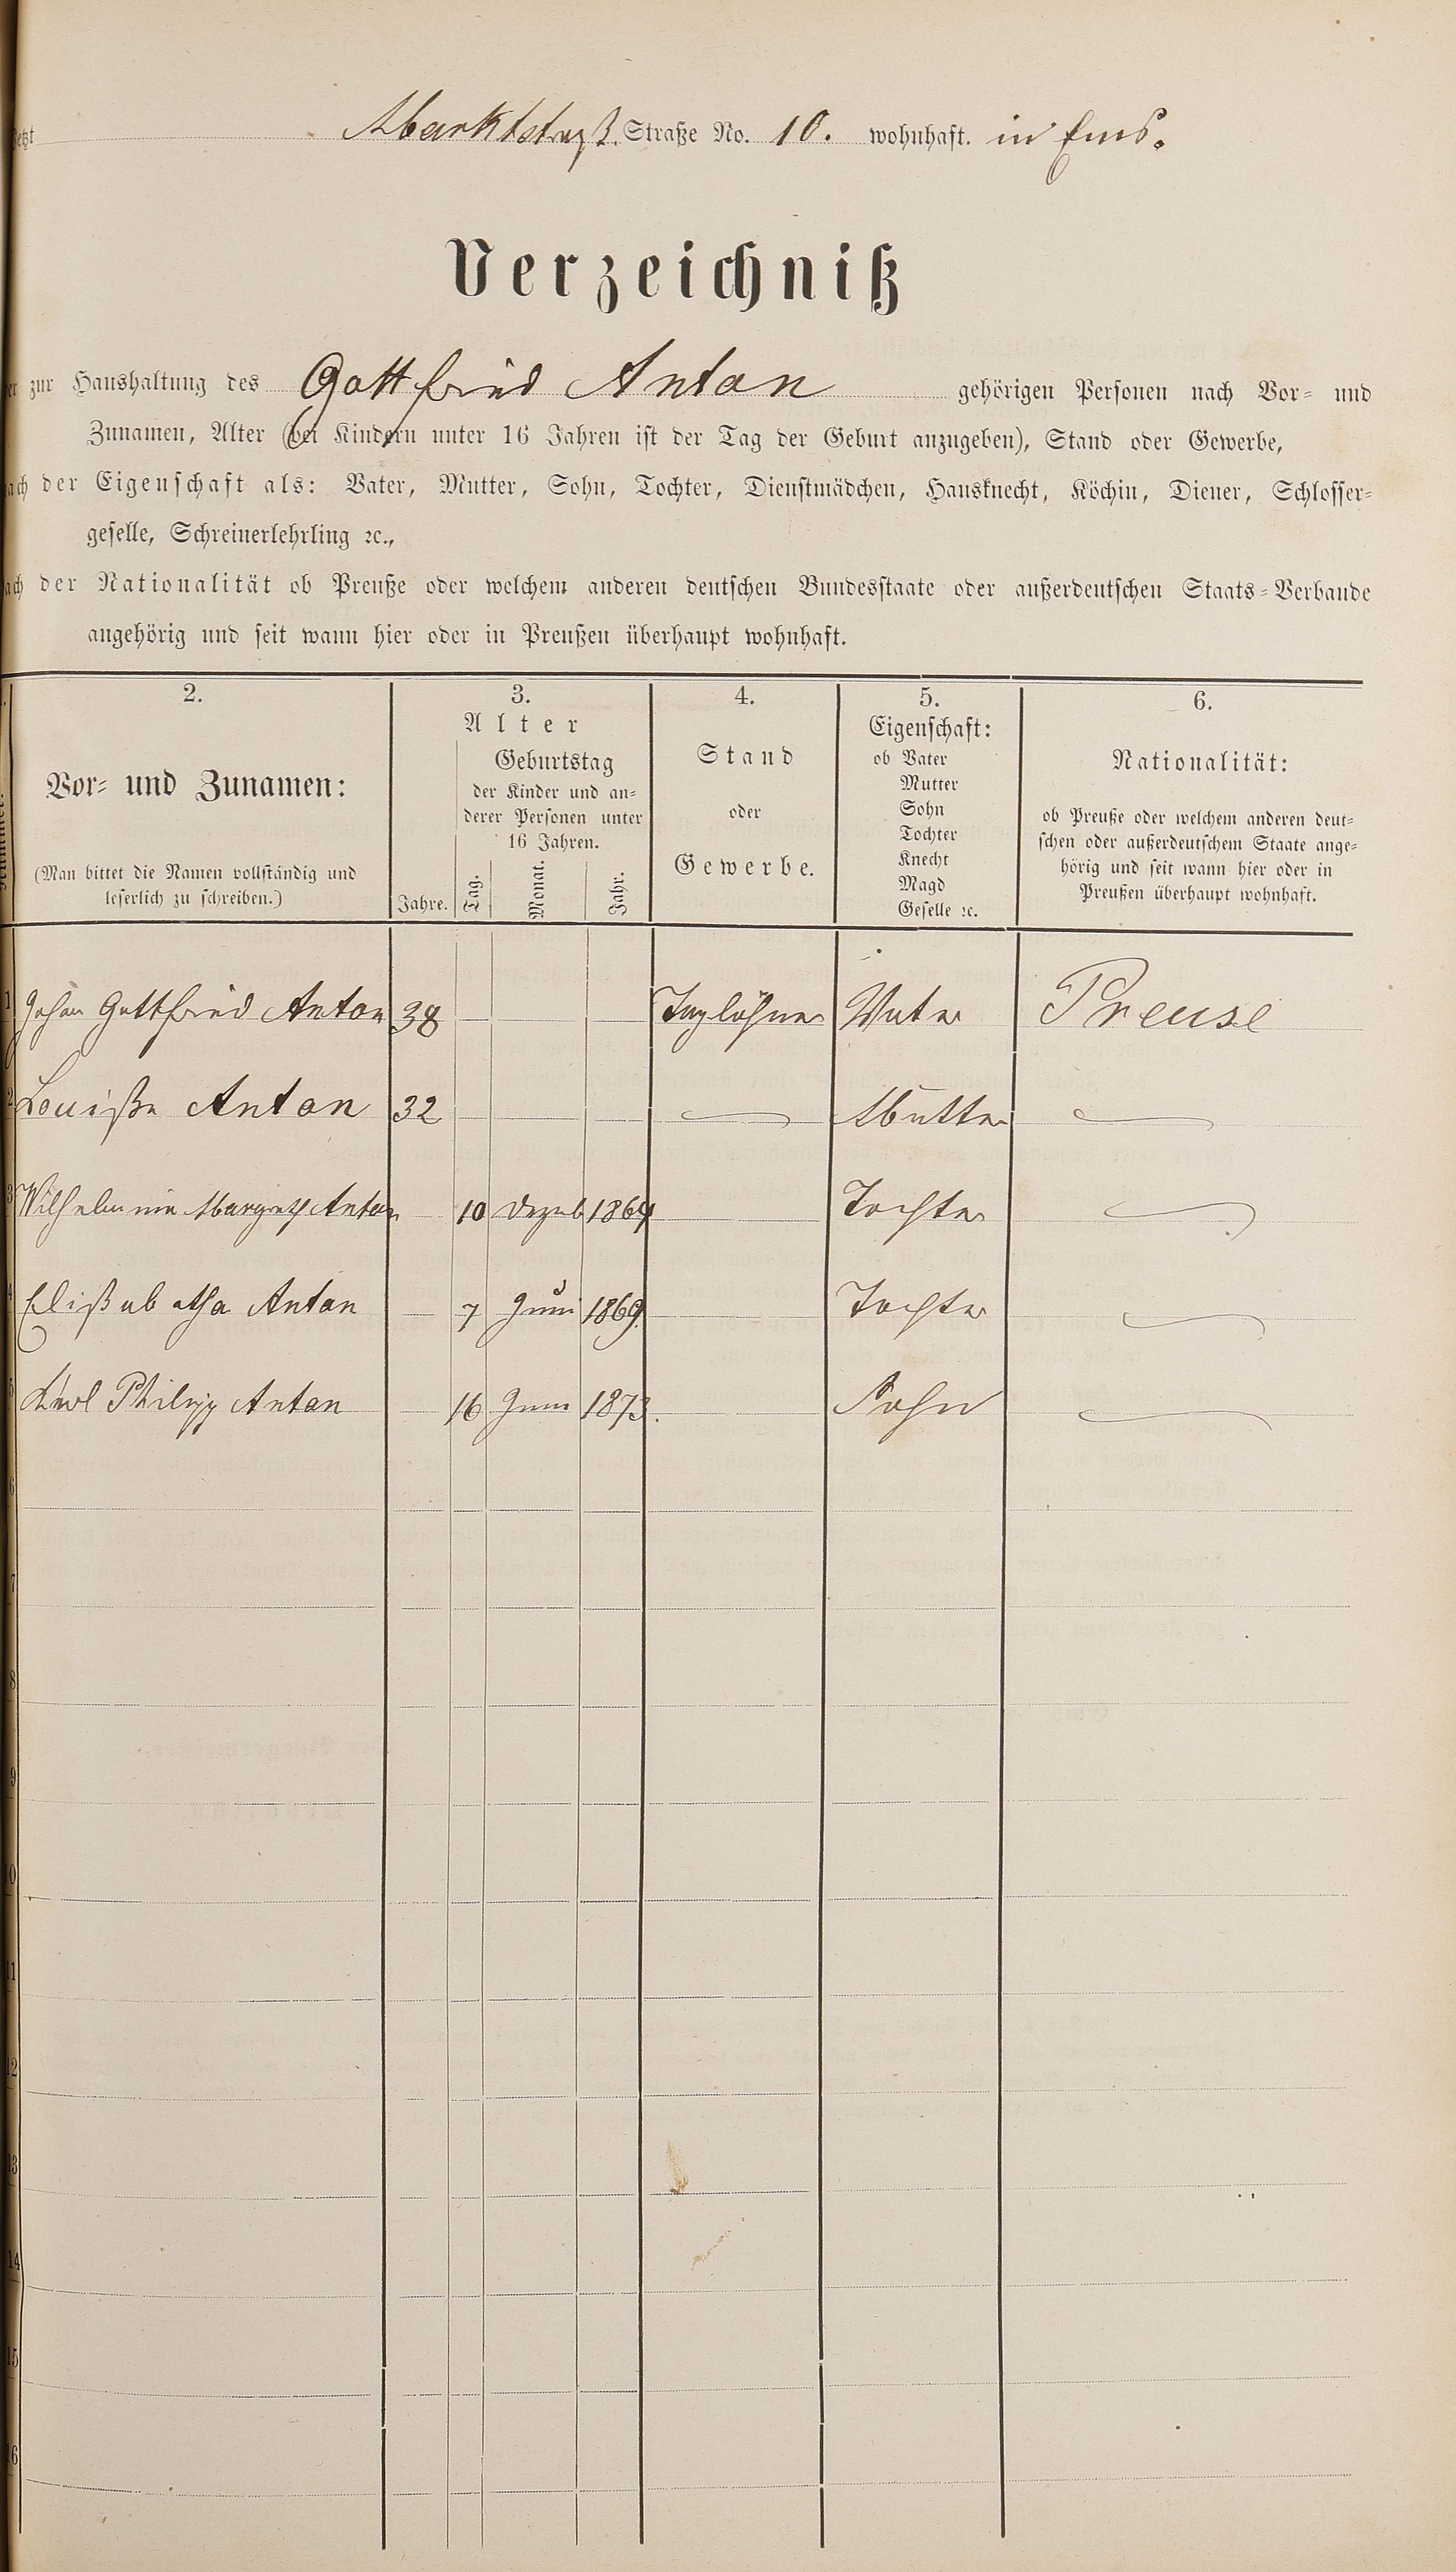 jetzt Marktstraß. Straße No. 10. wohnhaft. in Ems.
Verzeichniß
der zur Haushaltung des Gottfried Anton gehörigen Personen nach Vor- und
Zunamen, Alter (bei Kindern unter 16 Jahren ist der Tag der Geburt anzugeben), Stand oder Gewerbe,
nach der Eigenschaft als: Vater, Mutter, Sohn, Tochter, Dienstmädchen, Hausknecht, Köchin, Diener, Schlosser-
geselle, Schreinerlehrling ꝛc.,
nach der Nationalität ob Preuße oder welchem anderen deutschen Bundesstaate oder außerdeutschen Staats-Verbande
angehörig und seit wann hier oder in Preußen überhaupt wohnhaft.
2.
Vor- und Zunamen:
(Man bittet die Namen vollständig und
leserlich zu schreiben.)
3.
Alter
Jahre.
Geburtstag
der Kinder und an-
derer Personen unter
16 Jahren.
Tag.
Monat.
Jahr.
4.
Stand
oder
Gewerbe.
5.
Eigenschaft:
ob Vater
Mutter
Sohn
Tochter
Knecht
Magd
Geselle ꝛc.
6.
Nationalität:
ob Preuße oder welchem anderen deut-
schen oder außerdeutschem Staate ange-
hörig und seit wann hier oder in
Preußen überhaupt wohnhaft.
1 Johan Gottfried Anton 38 Taglöhner Vater Preuse
2 Louiße Anton 32 Mutter
3 Wilhelmine Margreth Anton 10 Dezeb 1864 Tochter
4 Elißabetha Anton 7 Juni 1869. Tochter
5 Karl Philipp Anton 16 Juni 1873. Sohn
6
7
8
9
10
11
12
13
14
15
16